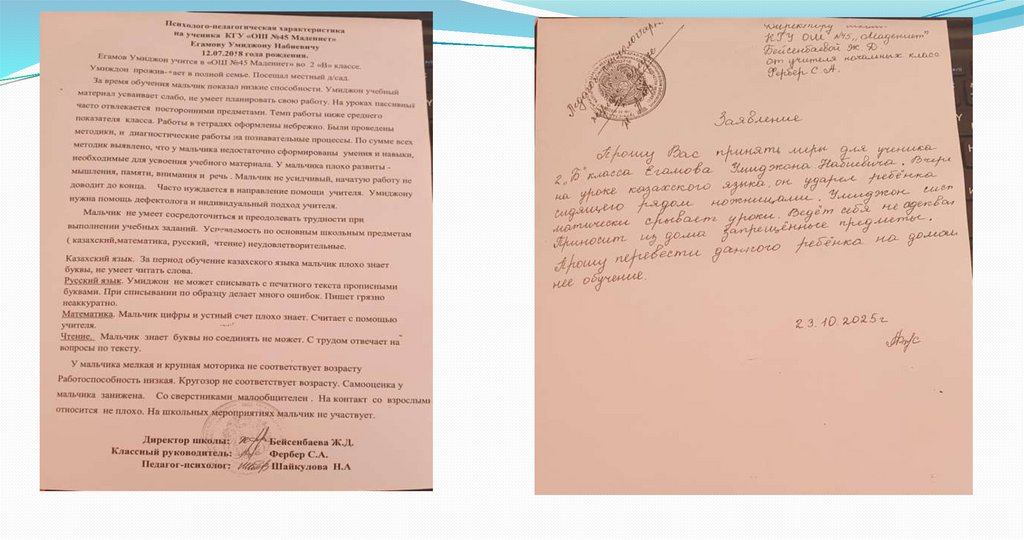 Психолого-педагогическая характеристика
на ученика КГУ «ОШ №45 Мадениет»
Егамову Умиджону Набиевичу
12.07.2018 года рождения.
Егамов Умиджон учится в «ОШ №45 Мадениет» во 2 «В» классе.
Умиждон прожив-ает в полной семье. Посещал местный д/сад.
За время обучения мальчик показал низкие способности. Умиджон учебный
материал усваивает слабо, не умеет планировать свою работу. На уроках пассивный
часто отвлекается посторонними предметами. Темп работы ниже среднего
показателя класса. Работы в тетрадях оформлены небрежно. Были проведены
методики, и диагностические работы на познавательные процессы. По сумме всех
методик выявлено, что у мальчика недостаточно сформированы умения и навыки,
необходимые для усвоения учебного материала. У мальчика плохо развиты -
мышления, памяти, внимания и речь . Мальчик не усидчивый, начатую работу не
доводит до конца. Часто нуждается в направление помощи учителя. Умиджону
нужна помощь дефектолога и индивидуальный подход учителя.
Мальчик не умеет сосредоточиться и преодолевать трудности при
выполнении учебных заданий. Успеваемость по основным школьным предметам
( казахский,математика, русский, чтение) неудовлетворительные.
Казахский язык. За период обучение казахского языка мальчик плохо знает
буквы, не умеет читать слова.
Русский язык. Умиджон не может списывать с печатного текста прописными
буквами. При списывании по образцу делает много ошибок. Пишет грязно
неаккуратно.
Математика. Мальчик цифры и устный счет плохо знает. Считает с помощью
учителя.
Чтение. Мальчик знает буквы но соединять не может. С трудом отвечает на
вопросы по тексту.
У мальчика мелкая и крупная моторика не соответствует возрасту
Работоспособность низкая. Кругозор не соответствует возрасту. Самооценка у
мальчика занижена. Со сверстниками малообщителен . На контакт со взрослыми
относится не плохо. На школьных мероприятиях мальчик не участвует.
Директор школы: Бейсенбаева Ж.Д.
Классный руководитель: Фербер С.А.
Педагог-психолог: Шайкулова Н.А
Директору школы
КГУ ОШ №45 „Мадениет"
Бейсенбаевой Ж Д
от учителя начальных класс
Фербер С.А.
Заявление
Прошу Вас принять меры для ученика
2 „Б" класса Егамова Умиджона Набиевича. Вчера
на уроке казахского языка, он ударил ребёнка
сидящего рядом ножницами. Умиджон сист
матически срывает уроки. Ведёт себя не адекват
Приносит из дома запрещённые предметы.
Прошу перевести данного ребёнка на домаш
нее обучение.
23.10.2025г